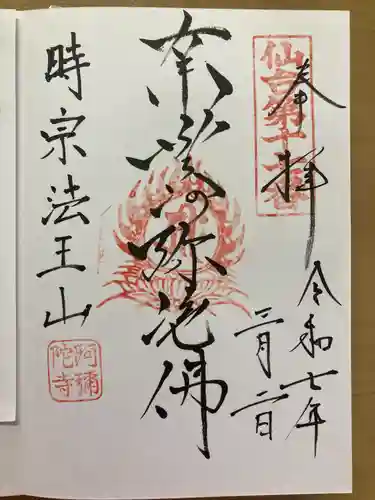 奉拝
仙台第十二番
令和七年
三月二日
南無阿弥陀佛
時宗法王山
阿彌陀寺